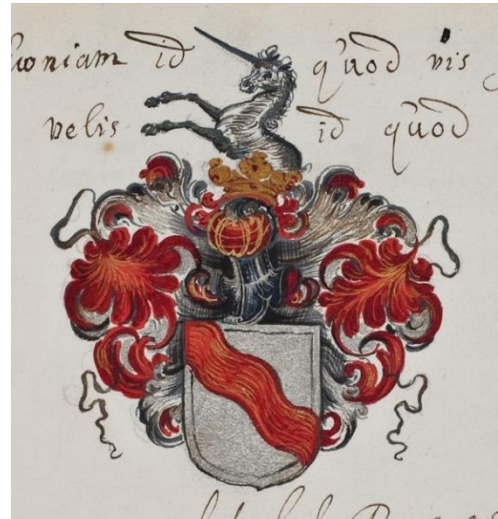 Quoniam id quod vis
velis id quod